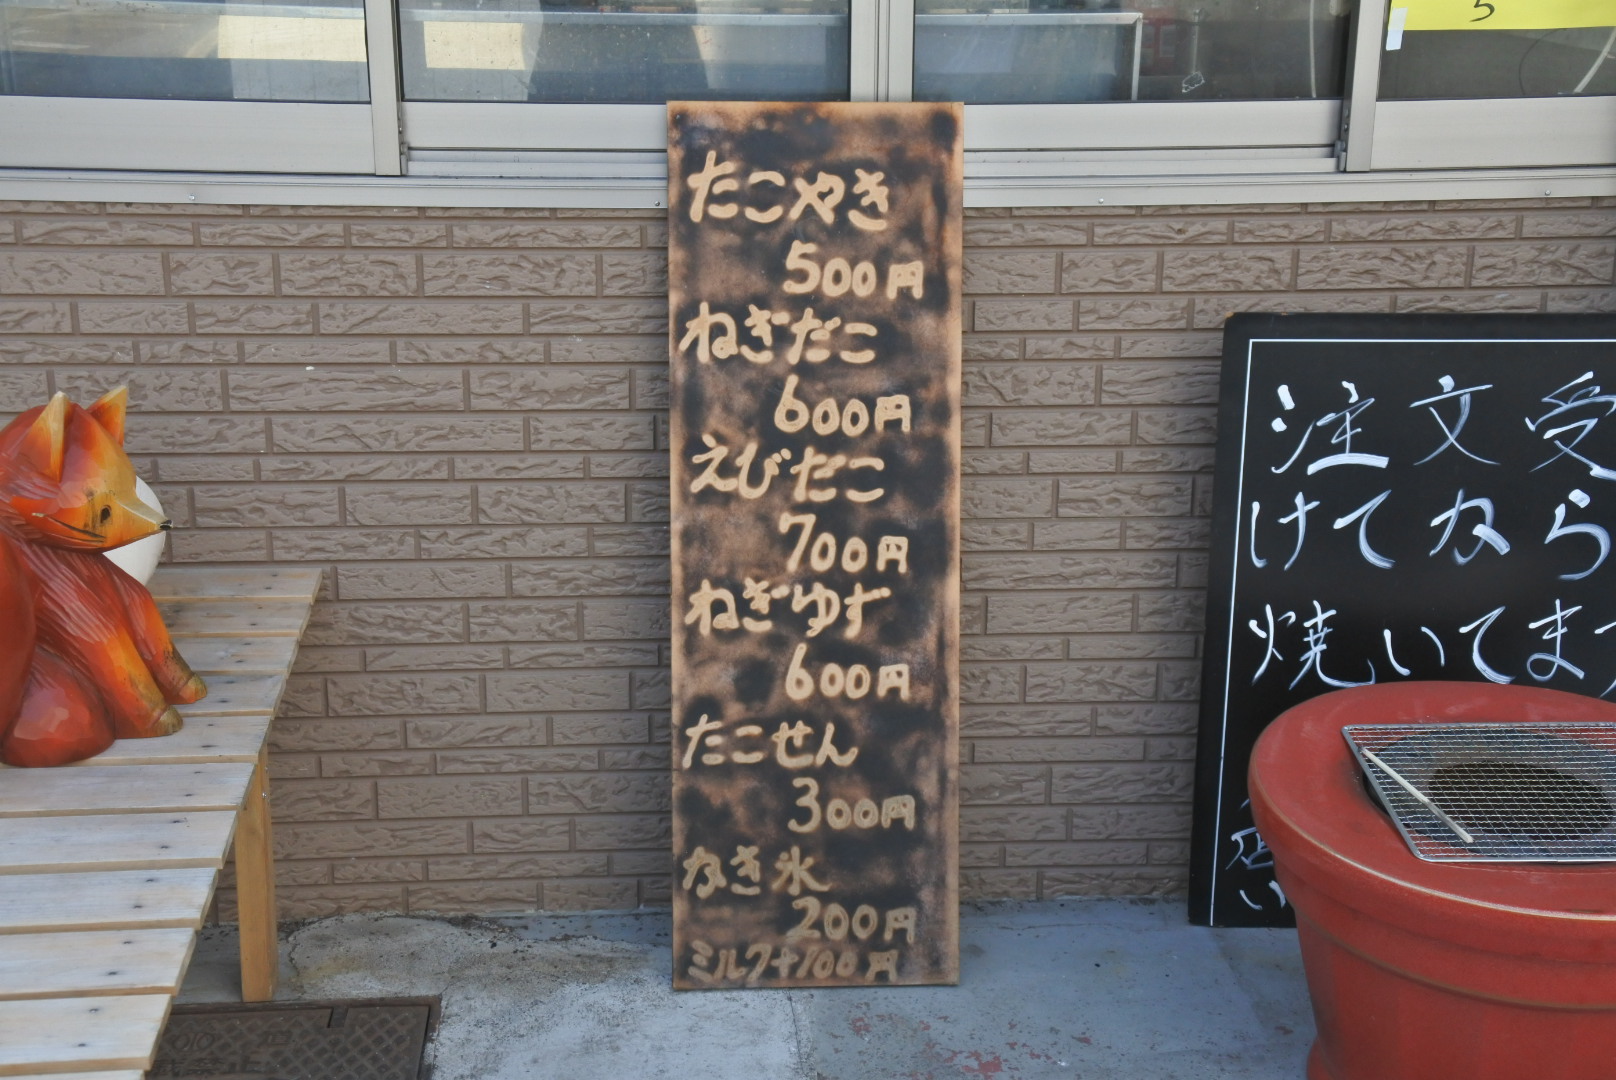 たこやき
500円
ねぎだこ
600円
えびだこ
700円
ねぎゆず
600円
たこせん
300円
かき氷
200円
ミルク+100円
5
注文受
けてから
焼いてま